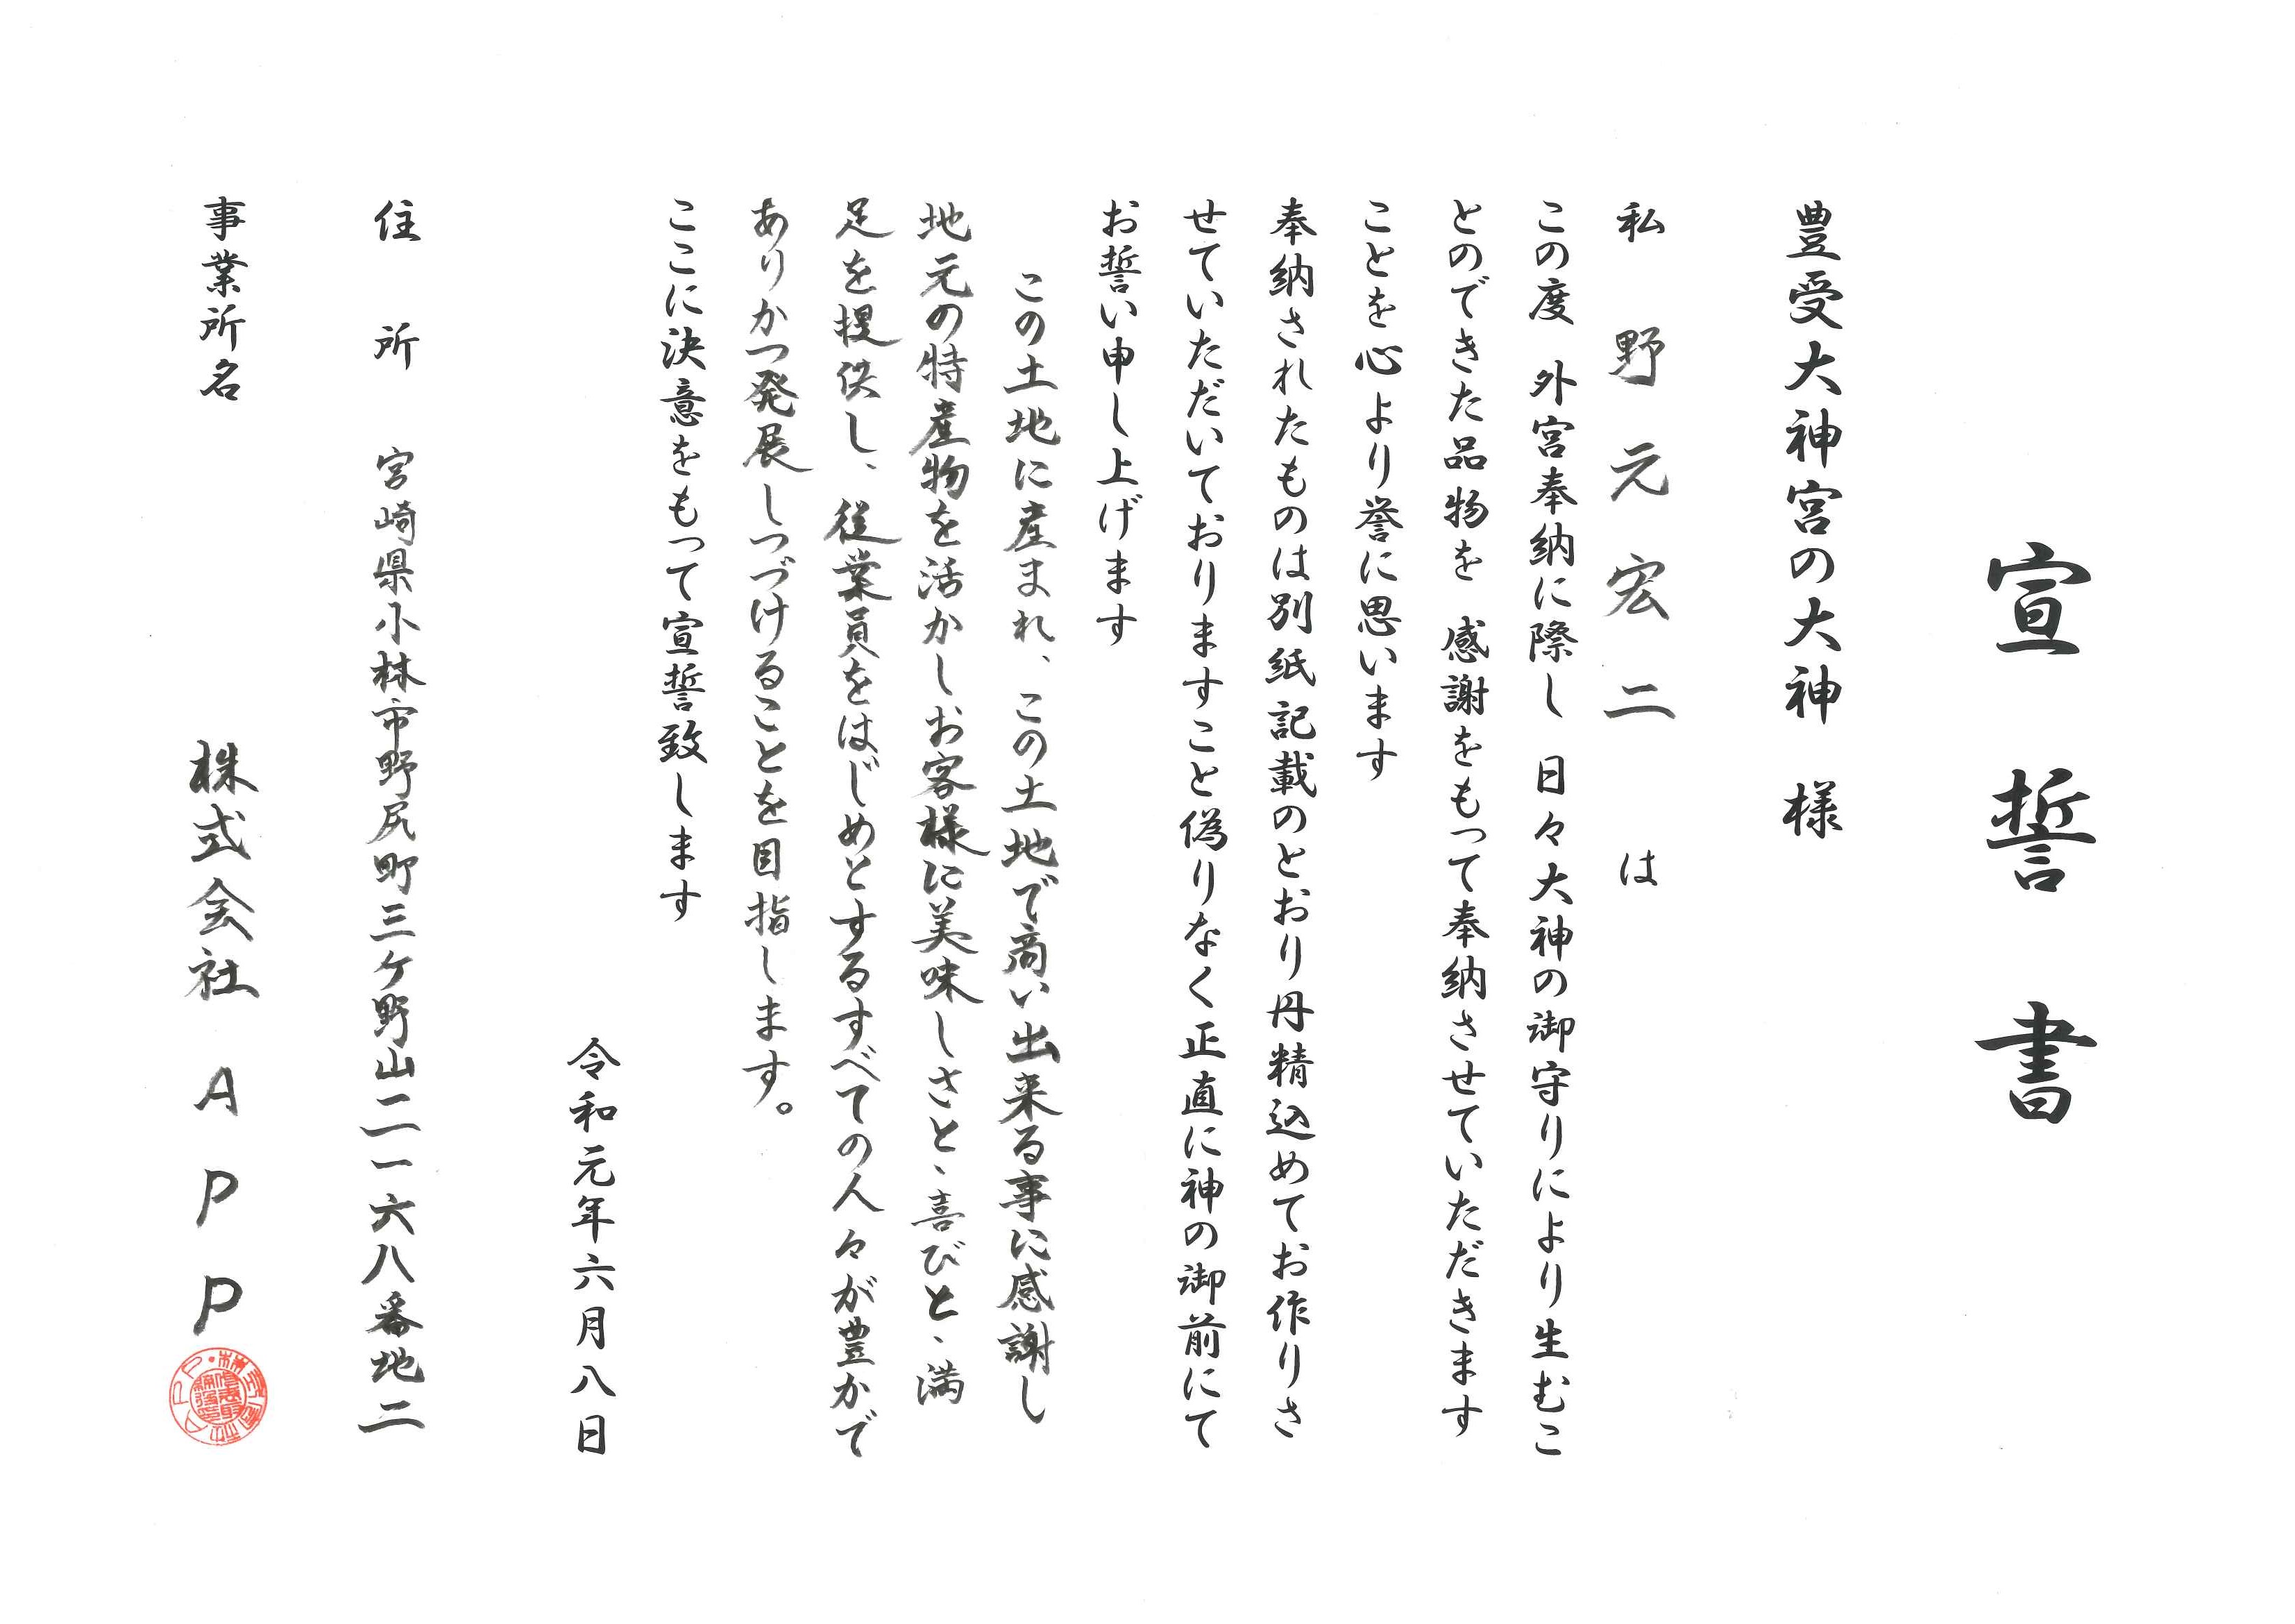 宣誓書
豊受大神宮の大神 様
私 野元宏二 は
この度 外宮奉納に際し 日々大神の御守りにより生むこ
とのできた品物を 感謝をもって奉納させていただきます
ことを心より誉に思います
奉納されたものは別紙記載のとおり丹精込めてお作りさ
せていただいておりますこと偽りなく正直に神の御前にて
お誓い申し上げます
この土地に産まれ、この土地で商い出来る事に感謝し
地元の特産物を活かしお客様に美味しさと、喜びと、満
足を提供し、従業員をはじめとするすべての人々が豊かで
ありかつ発展しつづけることを目指します。
ここに決意をもって宣誓致します
令和元年六月八日
住所 宮崎県小林市野尻町三ケ野山二一六八番地二
事業所名 株式会社 APP